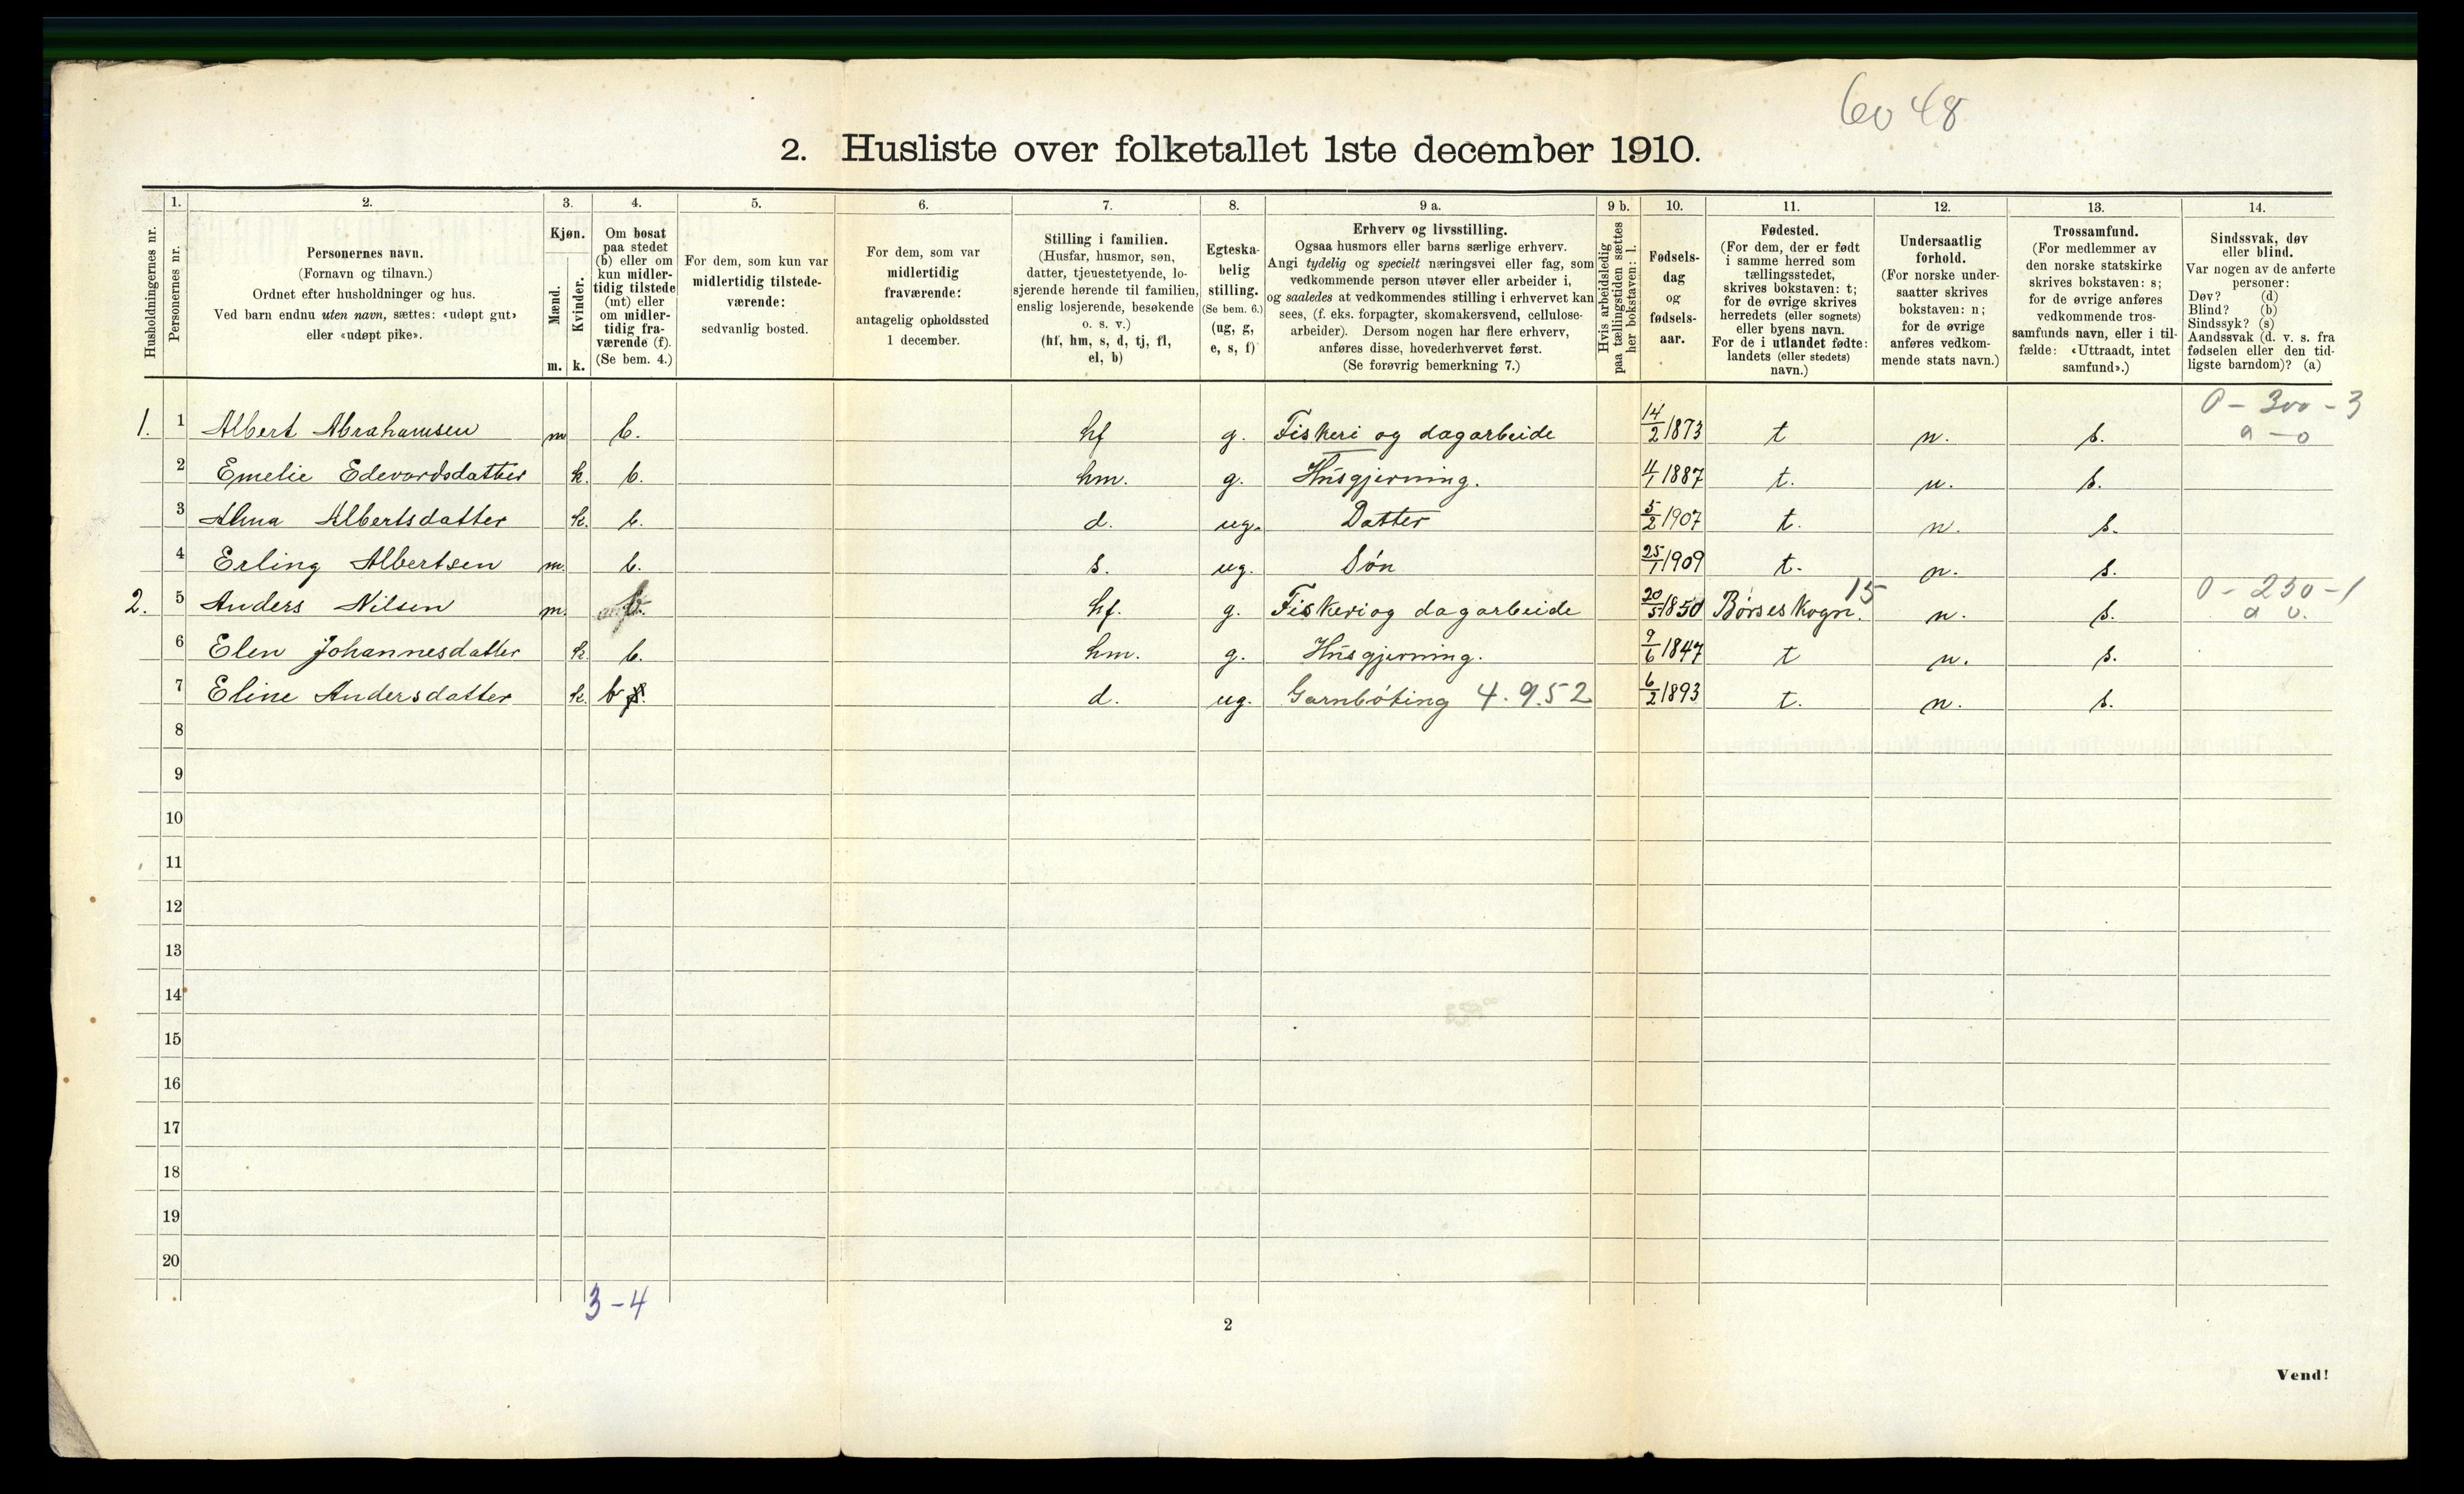 6048
2. Husliste over folketallet 1ste december 1910.
Husholdningernes nr.
1. Personernes nr.
2.
Personernes navn.
(Fornavn og tilnavn.)
Ordnet efter husholdninger og hus.
Ved barn endnu uten navn, sættes: «udøpt gut»
eller «udøpt pike».
3.
Kjøn.
Mænd.
Kvinder.
m. k.
4.
Om bosat
paa stedet
(b) eller om
kun midler-
tidig tilstede
(mt) eller
om midler-
tidig fra-
værende (f).
(Se bem. 4.)
5.
For dem, som kun var
midlertidig tilstede-
værende:
sedvanlig bosted.
6.
For dem, som var
midlertidig
fraværende:
antagelig opholdssted
1 december.
7.
Stilling i familien.
(Husfar, husmor, søn,
datter, tjenestetyende, lo-
sjerende hørende til familien,
enslig losjerende, besøkende
o. s. v.)
(hf, hm, s, d, tj, fl,
el, b)
8.
Egteska-
belig
stilling.
(Se bem. 6.)
(ug, g,
e, s, f)
9 a.
Erhverv og livsstilling.
Ogsaa husmors eller barns særlige erhverv.
Angi tydelig og specielt næringsvei eller fag, som
vedkommende person utøver eller arbeider i,
og saaledes at vedkommendes stilling i erhvervet kan
sees, (f. eks. forpagter, skomakersvend, cellulose-
arbeider). Dersom nogen har flere erhverv,
anføres disse, hovederhvervet først.
(Se forøvrig bemerkning 7.)
9 b.
Hvis arbeidsledig
paa tællingstiden sættes
her bokstaven: l.
10.
Fødsels-
dag
og
fødsels-
aar.
11.
Fødested.
(For dem, der er født
i samme herred som
tællingsstedet,
skrives bokstaven: t;
for de øvrige skrives
herredets (eller sognets)
eller byens navn.
For de i utlandet fødte:
landets (eller stedets)
navn.)
12.
Undersaatlig
forhold.
(For norske under-
saatter skrives
bokstaven: n;
for de øvrige
anføres vedkom-
mende stats navn.)
13.
Trossamfund.
(For medlemmer av
den norske statskirke
skrives bokstaven: s;
for de øvrige anføres
vedkommende tros-
samfunds navn, eller i til-
fælde: «Uttraadt, intet
samfund».)
14.
Sindssvak, døv
eller blind.
Var nogen av de anførte
personer:
Døv? (d)
Blind? (b)
Sindssyk? (s)
Aandssvak (d. v. s. fra
fødselen eller den tid-
ligste barndom)? (a)
0 - 300 - 3
1. 1 Albert Abrahamsen m b. hf g. Fiskeri og dagarbeide 14/2 1873 t n. s. a - o
2 Emelie Edevardsdatter k. b. hm. g. Husgjerning. 4/1 1887 t. n. s.
3 Alma Albertsdatter k. b. d. ug. Datter 5/2 1907 t. n. s.
4 Erling Albertsen m. b. s. ug. Søn 25/1 1909 t. n. s.
15 0 - 250 - 1
2. 5 Anders Nilsen m. b. hf. g. Fiskeri og dagarbeide 20/5 1850 Børseskogn. n. s. a o.
6 Elen Johannesdatter k. b. hm. g. Husgjerning. 9/6 1847 t n. s.
7 Eline Andersdatter k. b d. ug. Garnbøting 4.9.52 6/2 1893 t. n. s.
8
9
10
11
12
13
14
15
16
17
18
19
20
3-4
2
Vend!